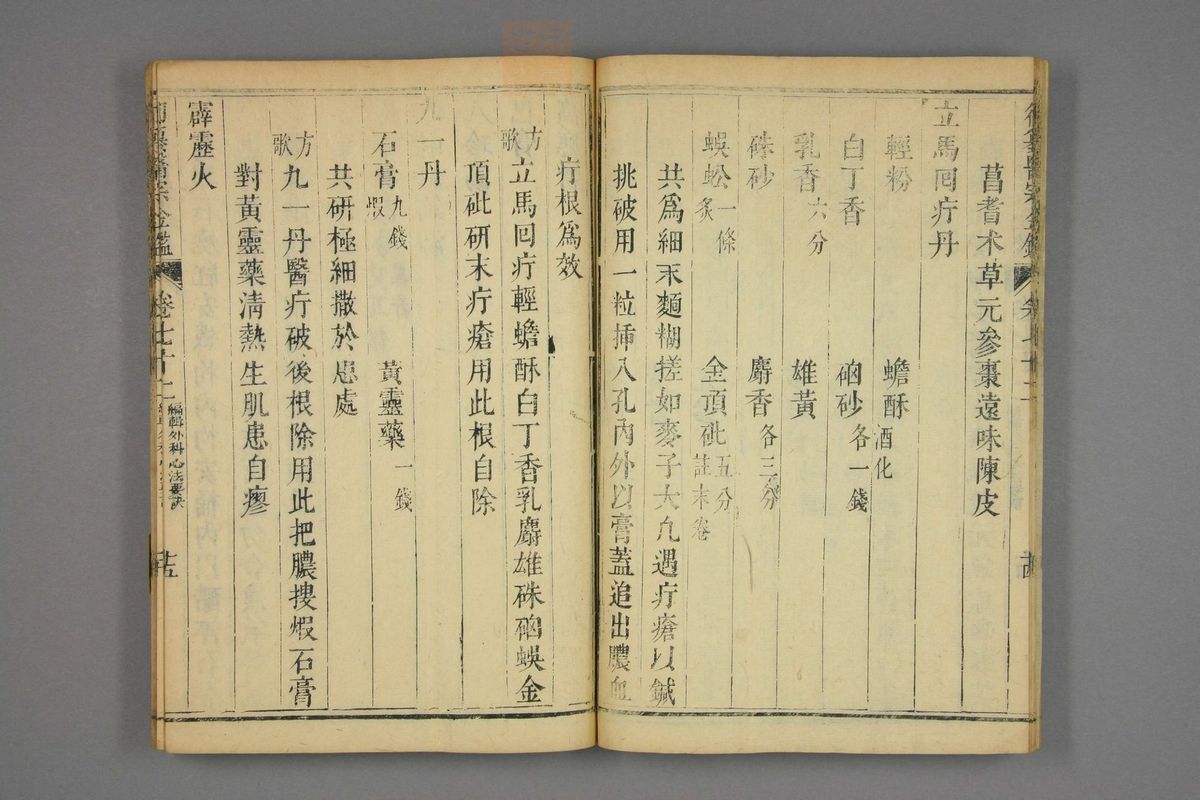 菖耆术草元參棗遠味陳皮
立馬囘疔丹
輕粉 蟾酥酒化
白丁香 硇砂各一錢
乳香六分 雄黃
硃砂 麝香各三分
蜈蚣一條炙 金頂砒五分註末卷
共爲細末麵糊搓如麥子大凡遇疔瘡以鍼
挑破用一粒揷入孔內外以膏蓋追出膿血
疔根爲效
方歌立馬囘疔輕蟾酥白丁香乳麝雄硃硇蜈金
頂砒研末疔瘡用此根自除
九一丹
石膏九錢煅 黃靈藥一錢
共研極細撒於患處
方歌九一丹醫疔破後根除用此把膿搜煅石膏
對黃靈藥淸熱生肌患自瘳
霹靂火
御纂醫宗金鑑 卷七十二 編輯外科心法要訣 十五